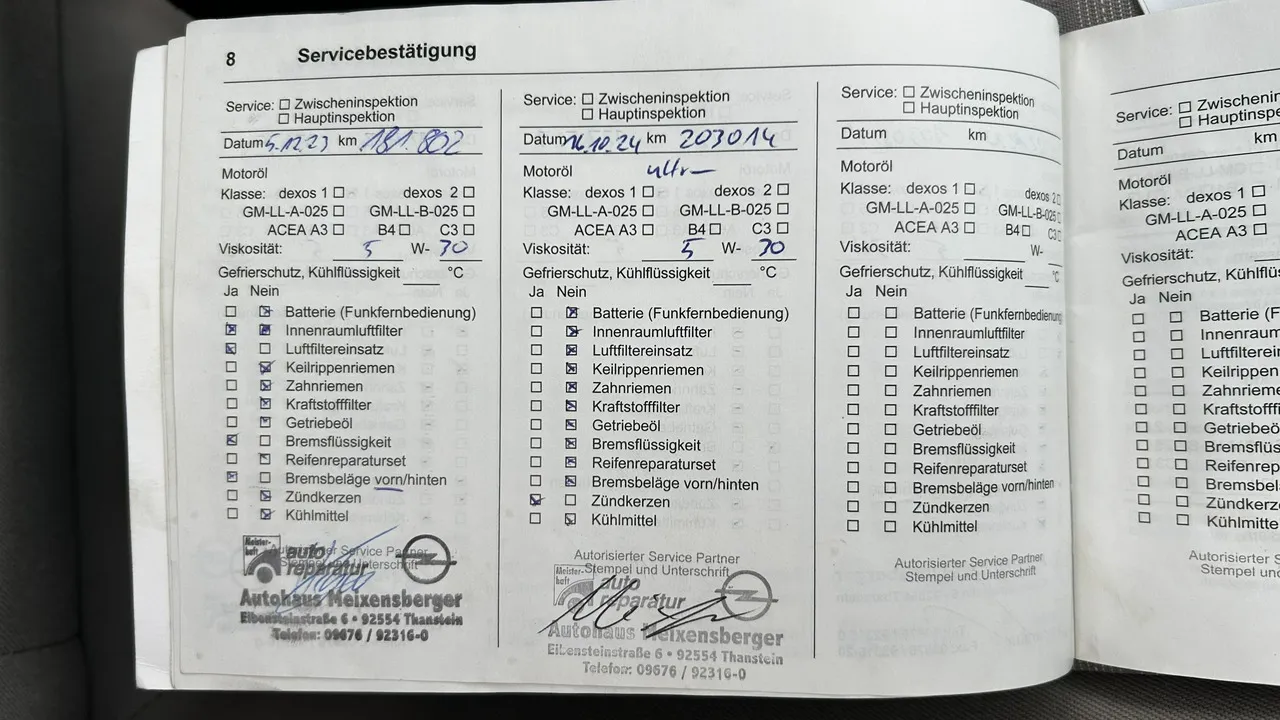 8 Servicebestätigung
Service: ☐ Zwischeninspektion
☐ Hauptinspektion
Datum 5.12.23 km 181.802
Motoröl
Klasse: dexos 1 ☐ dexos 2 ☐
GM-LL-A-025 ☐ GM-LL-B-025 ☐
ACEA A3 ☐ B4 ☐ C3 ☐
Viskosität: 5 W- 30
Gefrierschutz, Kühlflüssigkeit °C
Ja Nein
☐ ☒ Batterie (Funkfernbedienung)
☒ ☒ Innenraumluftfilter
☒ ☐ Luftfiltereinsatz
☐ ☒ Keilrippenriemen
☐ ☒ Zahnriemen
☐ ☒ Kraftstofffilter
☐ ☒ Getriebeöl
☒ ☐ Bremsflüssigkeit
☐ ☒ Reifenreparaturset
☒ ☐ Bremsbeläge vorn/hinten
☐ ☒ Zündkerzen
☐ ☒ Kühlmittel
Autorisierter Service Partner
Stempel und Unterschrift
Meisterhaft
auto
reparatur
Autohaus Meixensberger
Eibensteinstraße 6 • 92554 Thanstein
Telefon: 09676 / 92316-0
Service: ☐ Zwischeninspektion
☐ Hauptinspektion
Datum 16.10.24 km 203014
Motoröl
Klasse: dexos 1 ☐ dexos 2 ☐
GM-LL-A-025 ☐ GM-LL-B-025 ☐
ACEA A3 ☐ B4 ☐ C3 ☐
Viskosität: 5 W- 30
Gefrierschutz, Kühlflüssigkeit °C
Ja Nein
☐ ☒ Batterie (Funkfernbedienung)
☐ ☒ Innenraumluftfilter
☐ ☒ Luftfiltereinsatz
☐ ☒ Keilrippenriemen
☐ ☒ Zahnriemen
☐ ☒ Kraftstofffilter
☐ ☒ Getriebeöl
☐ ☒ Bremsflüssigkeit
☐ ☒ Reifenreparaturset
☐ ☒ Bremsbeläge vorn/hinten
☒ ☐ Zündkerzen
☐ ☒ Kühlmittel
Autorisierter Service Partner
Stempel und Unterschrift
Meisterhaft
auto
reparatur
Autohaus Meixensberger
Eibensteinstraße 6 • 92554 Thanstein
Telefon: 09676 / 92316-0
Service: ☐ Zwischeninspektion
☐ Hauptinspektion
Datum km
Motoröl
Klasse: dexos 1 ☐ dexos 2 ☐
GM-LL-A-025 ☐ GM-LL-B-025
ACEA A3 ☐ B4 ☐ C3
Viskosität: W-
Gefrierschutz, Kühlflüssigkeit °C
Ja Nein
☐ ☐ Batterie (Funkfernbedienung
☐ ☐ Innenraumluftfilter
☐ ☐ Luftfiltereinsatz
☐ ☐ Keilrippenriemen
☐ ☐ Zahnriemen
☐ ☐ Kraftstofffilter
☐ ☐ Getriebeöl
☐ ☐ Bremsflüssigkeit
☐ ☐ Reifenreparaturset
☐ ☐ Bremsbeläge vorn/hinten
☐ ☐ Zündkerzen
☐ ☐ Kühlmittel
Autorisierter Service Partner
Stempel und Unterschrift
Service: ☐ Zwischenin
☐ Hauptinspe
Datum km
Motoröl
Klasse: dexos 1 ☐
GM-LL-A-025 ☐
ACEA A3 ☐
Viskosität:
Gefrierschutz, Kühlflüs
Ja Nein
☐ ☐ Batterie (F
☐ ☐ Innenraum
☐ ☐ Luftfilterein
☐ ☐ Keilrippen
☐ ☐ Zahnrieme
☐ ☐ Kraftstofff
☐ ☐ Getriebeö
☐ ☐ Bremsflüs
☐ ☐ Reifenrep
☐ ☐ Bremsbel
☐ ☐ Zündkerze
☐ ☐ Kühlmitte
Autorisierte
Stempel und